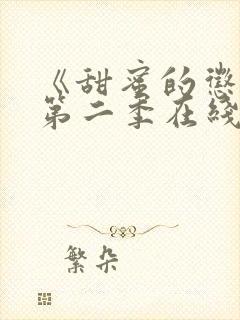 《甜蜜的惩
第二季在线
繁朵